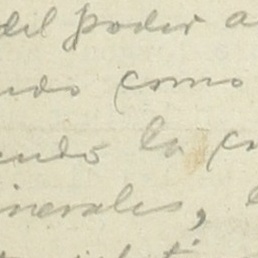 del poder a
ndo como
endo la c
inerales,